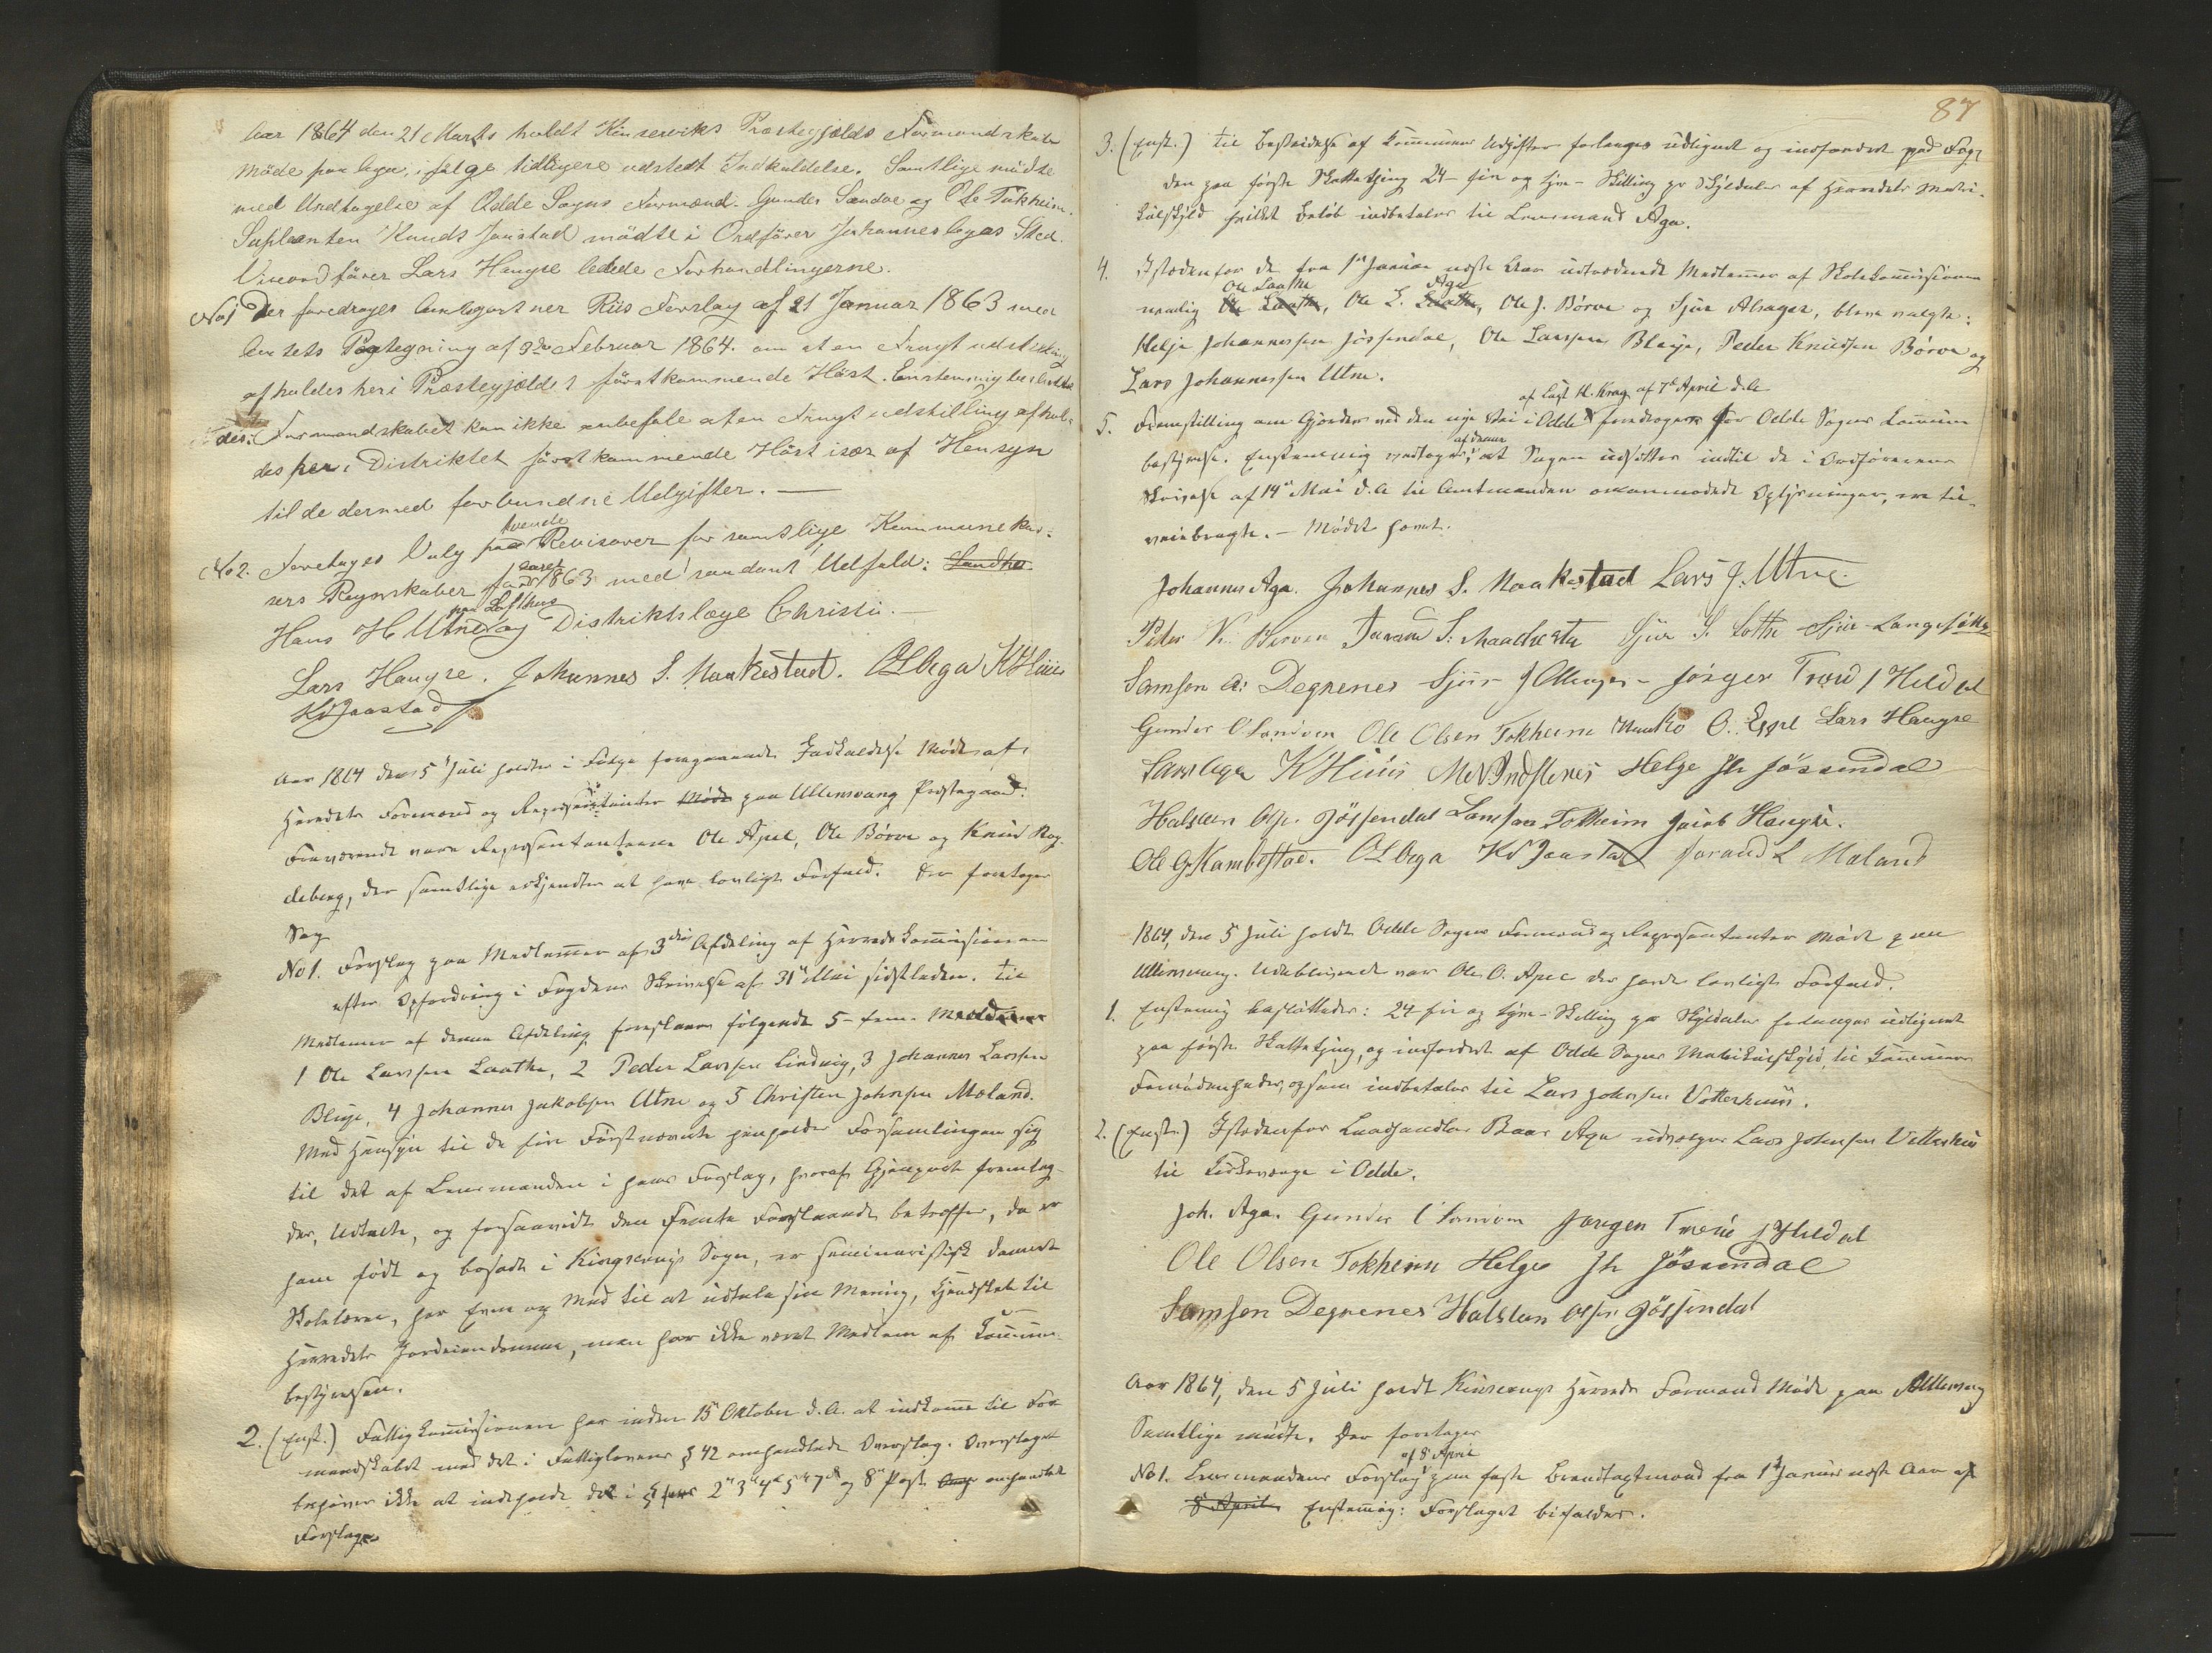 Aar 1864 den 21 Marts holdt Kinserviks Præstegjælds Formandskab
Møde paa Aga, i følge tidligere udstedt Indkaldelse. Samtlige mødte
med Undtagelse af Odde Sogns Formænd. Gunder Sandve og Ole Tokheim.
Supleanten Knudt Jaastad mødte i Ordfører Johannes Agas Sted.
Viceordfører Lars Haugse ledede Forhandlingerne.
No 1 Der foredroges Amtsgartner Riis Forslag af 21 Januar 1863 med
Amtets Paategning af 9de Februar 1864. om at en Frugtudstilling
afholdes her i Præstegjældet førstkommende Høst. Enstemmig besluttedes:
Formandskabet kan ikke anbefale at en Frugtudstilling afholdes
her i Distriktet førstkommende Høst især af Hensyn
til de dermed forbundne Udgifter. —
No 2. Foretoges Valg paa tvende Revisorer for samtlige Kommunekassers
Regnskaber for Aaret 1863 med saadant Udfald: Landha
Hans H Utne paa Lofthus og Distriktslæge Christie. —
Lars Haugse. Johannes S. Naakestad. OL Aga K Huus
KJ Jaastad
Aar 1864 den 5 Juli holdtes i Følge foregaaende Indkaldelse Møde af
Herredets Formænd og Repræsentanter Møde paa Ullensvang Præstegaard.
Fraværende vare Repræsentanterne Ole Apel, Ole Børve og Knud Rogdeberg,
der samtlige erkjendtes at have lovligt Forfald. Der foretoges
Sag
No 1. Forslag paa Medlemmer af 3die Afdeling af Herredskommissionen
efter Opfordring i Fogdens Skrivelse af 31 Mai sidstleden. Til
Medlemmer af denne Afdeling foreslaaes følgende 5 - fem - Medlemmer
1 Ole Larsen Laathe, 2 Peder Larsen Lindvig, 3 Johannes Larsen
Bleje, 4 Johannes Jakobsen Utne og 5 Christen Johnsen Moland.
Med Hensyn til de fire Førstnævnte henholder Forsamlingen sig
til det af Lensmanden i hans Forslag, hvoraf Gjenpart fremlagdes,
Udtalte, og forsaavidt den Femte Foreslaaede betræffer, da er
han født og bosadt i Kinservigs Sogn, er seminaristisk dannet
Skolelærer, har Evne og Mod til at udtale sin Mening, Kjendskab til
Herredets Jordeiendomme, men har ikke været Medlem af Kommunebestyrelsen.
2. (Enst.) Fattigkommissionen har inden 15 Oktober d.A. at indkomme til Formandskabet
med det i Fattiglovens § 42 omhandlede Overslag. Overslaget
behøver ikke at indeholde det i 2n 3d 4d 5te 7de og 8n Post omhandlede
Forslag.
87
3. (Enst.) Til Bestridelse af Kommunens Udgifter forlanges udlignet og indfordret ved Fogden
paa første Skattething 24 - fire og tyve - Skilling pr Skyldaler af Herredets Matrikulskyld
hvilket Beløb indbetales til Lensmand Aga.
4. Istedenfor de fra 1n Januar næste Aar udtrædende Medlemmer af Skolekommissionen
nemlig Ole Laathe, Ole L. Aga, Ole J. Børve og Sjur Alsager, bleve valgte:
Helje Johannesen Jøssendal, Ole Larssen Bleje, Peder Knudsen Børve og
Lars Johannessen Utne.
5. Fremstilling om Gjerder ved den nye Vei i Odde af Capt H. Krag af 7de April d.A. foredroges for Odde Sogns Kommunebestyrelse.
Enstemmig vedtoges af denne, at Sagen udsættes indtil de i Ordførerens
Skrivelse af 14n Mai d.A. til Amtmanden omanmodede Oplysninger, ere tilveiebragte.
— Mødet hævet.
Johannes Aga. Johannes S. Naakestad Lars J. Utne
Peder K. Børven Jørand S. Maakestad Sjur S. Lothe Sjur Langesæter
Samson A: Degrenes Sjur J Alsager Jørgen Trond J Hildal
Gunder O Sandven Ole Olsen Tokheim O. Espe Lars Haugse
Lars Aga K Huus Helge Jh Jøssendal
Halsten Ols. Jøssendal Samson Tokheim Jacob Haugse.
Ole G. Kambestad. OL Aga KJ Jaastad Jørand L Moland
1864, den 5 Juli holdt Odde Sogns Formænd og Repræsentanter Møde paa
Ullensvang. Udeblivende var Ole O. Apel der havde lovligt Forfald.
1. Enstemmig besluttedes: 24 fire og tyve - Skilling pr Skyldaler forlanges udlignet
paa første Skattething, og indfordret af Odde Sogns Matrikulskyld, til Kommunens
Fornødenheder, og som indbetales til Lars Johnsen Votterhuus.
2. (Enst.) Istedenfor Landhandler Baar Aga udvælges Lars Johnsen Votterhuus
til Kirkeværge i Odde.
Joh. Aga. Gunder O Sandven Jørgen Trond J Hildal
Ole Olsen Tokheim Helge Jh Jøssendal
Samson Degrenes Halsten Olsen Jøssendal
Aar 1864, den 5 Juli holdt Kinservigs Herreds Formænd Møde paa Ullensvang
Samtlige mødte. Der foretoges
No 1. Lensmandens Forslag af 8 April paa faste Brandtaxtmænd fra 1n Januar næste Aar af
8 April Enstemmig: Forslaget bifaldes.